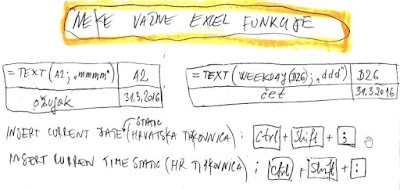 NEKE VAŽNE EXCEL FUNKCIJE
=TEXT(A2; „mmmm") A2
ožujak 31.3.2016
=TEXT(WEEKDAY(D26); „ddd") D26
čet 31.3.2016
INSERT CURRENT DATE STATIC (HRVATSKA TIPKOVNICA) ; Ctrl + Shift + ;
INSERT CURREN TIME STATIC (HR TIPKOVNICA) ; Ctrl + Shift + :